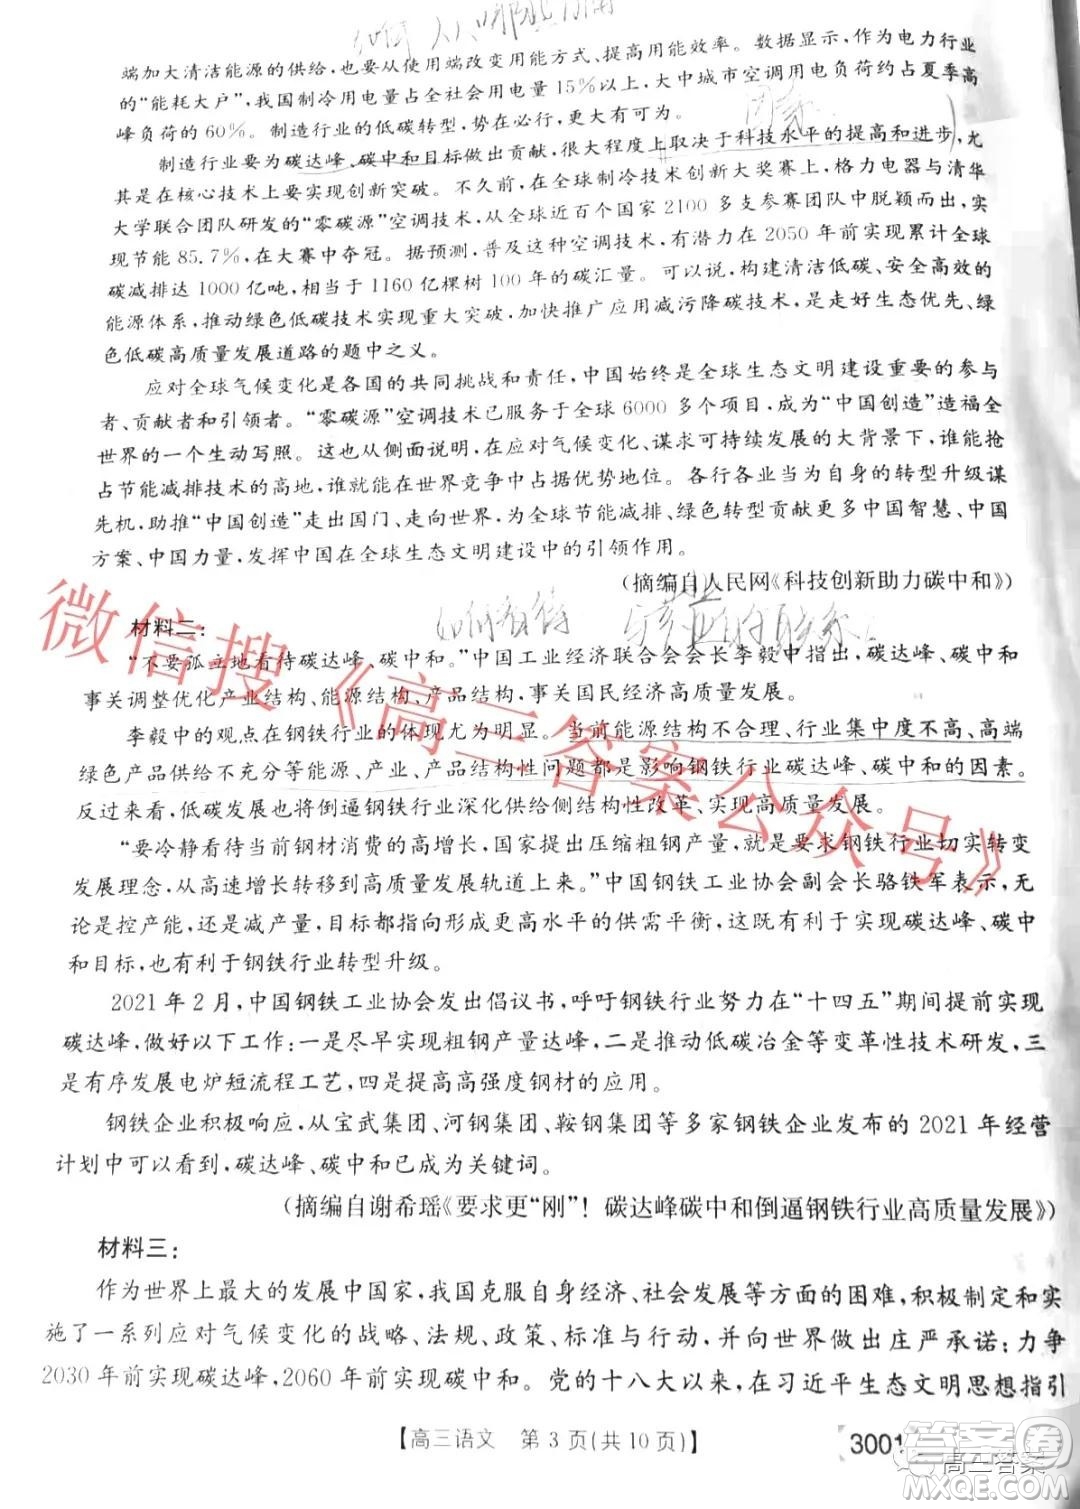 端加大清洁能源的供给,也要从使用端改变用能方式、提高用能效率。数据显示,作为电力行业
的“能耗大户”,我国制冷用电量占全社会用电量15%以上,大中城市空调用电负荷约占夏季高
峰负荷的60%。制造行业的低碳转型,势在必行,更大有可为。
制造行业要为碳达峰、碳中和目标做出贡献,很大程度上取决于科技水平的提高和进步,尤
其是在核心技术上要实现创新突破。不久前,在全球制冷技术创新大奖赛上,格力电器与清华
大学联合团队研发的“零碳源”空调技术,从全球近百个国家2100多支参赛团队中脱颖而出,实
现节能85.7%,在大赛中夺冠。据预测,普及这种空调技术,有潜力在2050年前实现累计全球
碳减排达1000亿吨,相当于1160亿棵树100年的碳汇量。可以说,构建清洁低碳、安全高效的
能源体系,推动绿色低碳技术实现重大突破,加快推广应用减污降碳技术,是走好生态优先、绿
色低碳高质量发展道路的题中之义。
应对全球气候变化是各国的共同挑战和责任,中国始终是全球生态文明建设重要的参与
者、贡献者和引领者。“零碳源”空调技术已服务于全球6000多个项目,成为“中国创造”造福全
世界的一个生动写照。这也从侧面说明,在应对气候变化、谋求可持续发展的大背景下,谁能抢
占节能减排技术的高地,谁就能在世界竞争中占据优势地位。各行各业当为自身的转型升级谋
先机,助推“中国创造”走出国门、走向世界,为全球节能减排、绿色转型贡献更多中国智慧、中国
方案、中国力量,发挥中国在全球生态文明建设中的引领作用。
(摘编自人民网《科技创新助力碳中和》)
材料二:
“不要孤立地看待碳达峰、碳中和。”中国工业经济联合会会长李毅中指出,碳达峰、碳中和
事关调整优化产业结构、能源结构、产品结构,事关国民经济高质量发展。
李毅中的观点在钢铁行业的体现尤为明显。当前能源结构不合理、行业集中度不高、高端
绿色产品供给不充分等能源、产业、产品结构性问题都是影响钢铁行业碳达峰、碳中和的因素。
反过来看,低碳发展也将倒逼钢铁行业深化供给侧结构性改革、实现高质量发展。
“要冷静看待当前钢材消费的高增长,国家提出压缩粗钢产量,就是要求钢铁行业切实转变
发展理念,从高速增长转移到高质量发展轨道上来。”中国钢铁工业协会副会长骆铁军表示,无
论是控产能,还是减产量,目标都指向形成更高水平的供需平衡,这既有利于实现碳达峰、碳中
和目标,也有利于钢铁行业转型升级。
2021年2月,中国钢铁工业协会发出倡议书,呼吁钢铁行业努力在“十四五”期间提前实现
碳达峰,做好以下工作:一是尽早实现粗钢产量达峰,二是推动低碳冶金等变革性技术研发,三
是有序发展电炉短流程工艺,四是提高高强度钢材的应用。
钢铁企业积极响应,从宝武集团、河钢集团、鞍钢集团等多家钢铁企业发布的2021年经营
计划中可以看到,碳达峰、碳中和已成为关键词。
(摘编自谢希瑶《要求更“刚”!碳达峰碳中和倒逼钢铁行业高质量发展》)
材料三:
作为世界上最大的发展中国家,我国克服自身经济、社会发展等方面的困难,积极制定和实
施了一系列应对气候变化的战略、法规、政策、标准与行动,并向世界做出庄严承诺:力争
2030年前实现碳达峰,2060年前实现碳中和。党的十八大以来,在习近平生态文明思想指引
【高三语文 第3页(共10页)】
3001
微信搜《高三答案公众号》
高三答案
答案圈
MXQE.COM